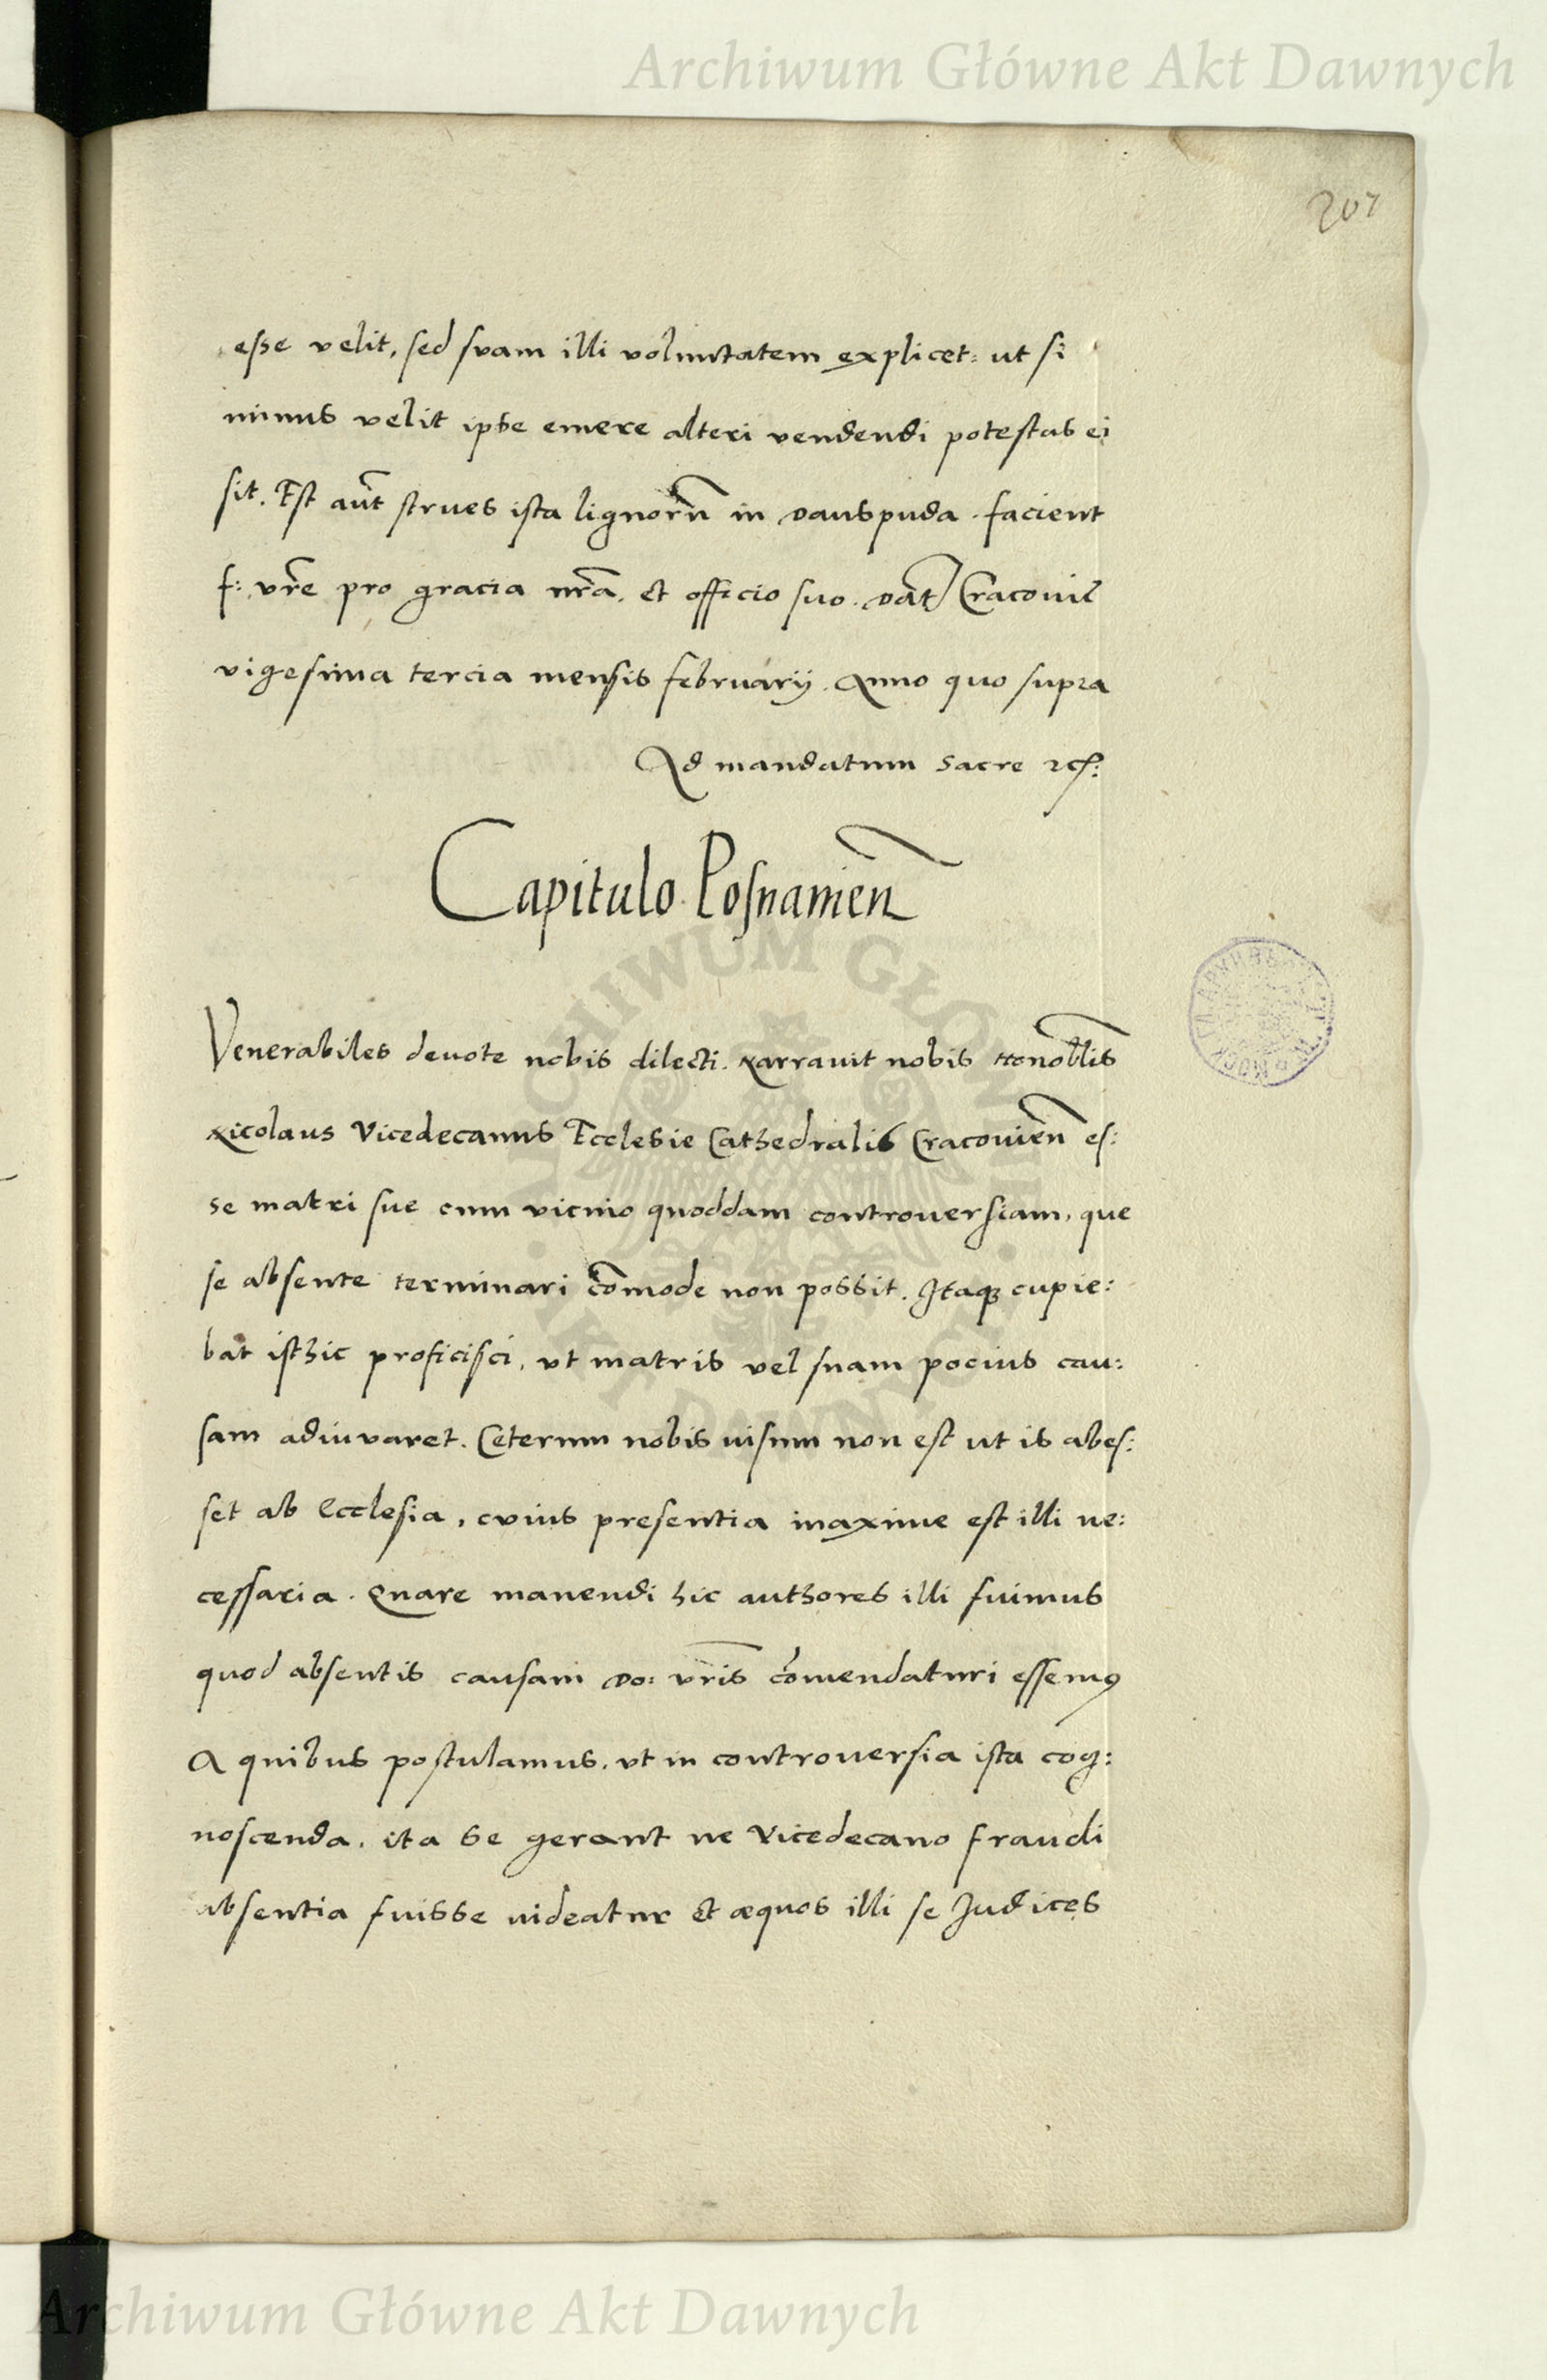 Archiwum Główne Akt Dawnych
207
esse velit, sed suam illi voluntatem explicet: ut si
minus velit ipse emere alteri vendendi potestas ei
sit. Est aūt strues ista lignorū in Dauspuda. facient
f: vr̄e pro gracia nr̄a, et officio suo. Dat̄ Cracovie
vigesima tercia mensis februarij. Anno quo supra
Ad mandatum Sacre etc:
Capitulo Posnanien̄
Venerabiles devote nobis dilecti. Narravit nobis Honob̄lis
Nicolaus Vicedecanus Ecclesie Cathedralis Cracovien̄ es:
se matri sue cum vicino quoddam controversiam, que
se absente terminari cōmode non possit. Itaq; cupie:
bat isthic proficisci, vt matris vel suam pocius cau:
sam adiuvaret. Ceterum nobis uisum non est ut is abes:
set ab Ecclesia, cuius presentia maxime est illi ne:
cessaria. Quare manendi hic authores illi fuimus
quod absentis causam Do: vr̄is cōmendaturi essemꝰ
A quibus postulamus, vt in controversia ista cog:
noscenda, ita se gerant ne Vicedecano fraudi
absentia fuisse uideatur et æquos illi se Judices
ARCHIWUM GŁÓWNE AKT DAWNYCH
Archiwum Główne Akt Dawnych